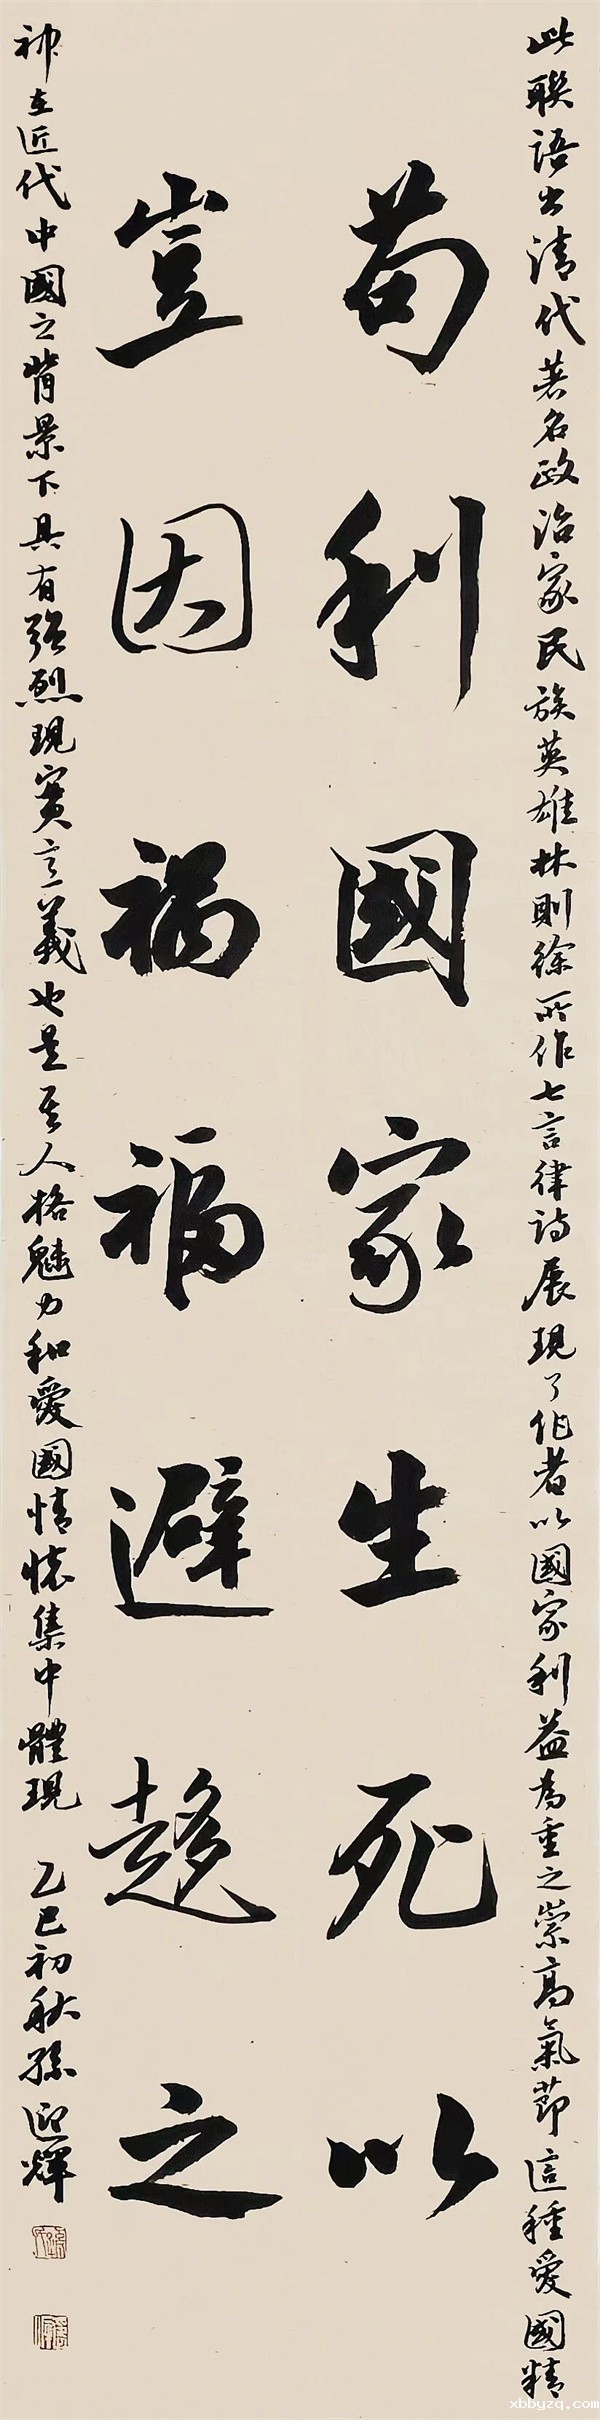 此聯語出清代著名政治家民族英雄林則徐所作七言律詩展現了作者以國家利益為重之崇高氣節這種愛國精
苟利國家生死以
豈因禍福避趨之
神在近代中國之背景下具有強烈現實意義也是其人格魅力和愛國情懷集中體現 乙巳初秋孫迎輝
xbbyzq.com